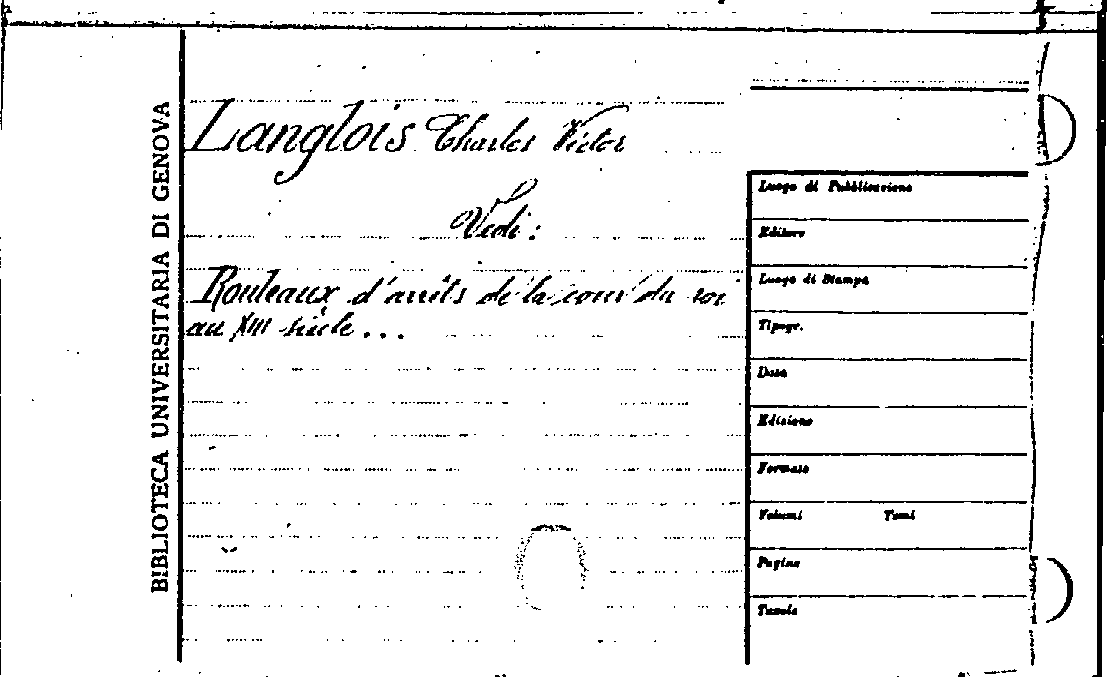 BIBLIOTECA UNIVERSITARIA DI GENOVA
Langlois Charles Victor
Vedi:
Rouleaux d'arrêts de la cour du roi
au XIII siècle...
Luogo di Pubblicazione
Editore
Luogo di Stampa
Tipogr.
Data
Edizione
Formato
Volumi Tomi
Pagine
Tavole